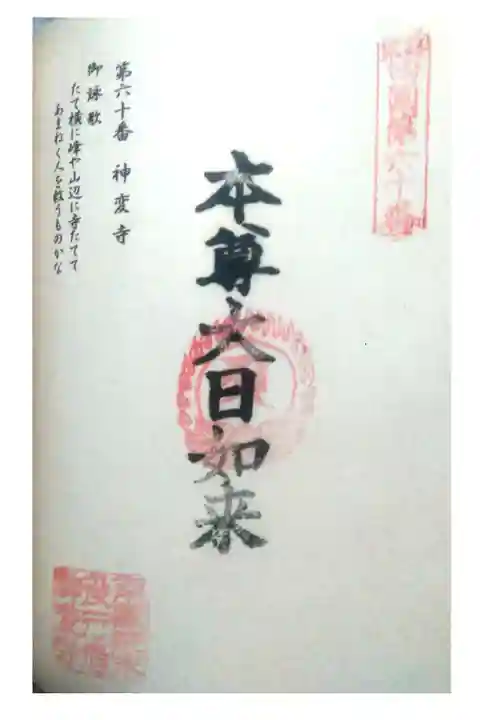 本尊大日如来
第六十番 神変寺
御詠歌
たて横に峰や山辺に寺たてて
あまねく人を救うものかな